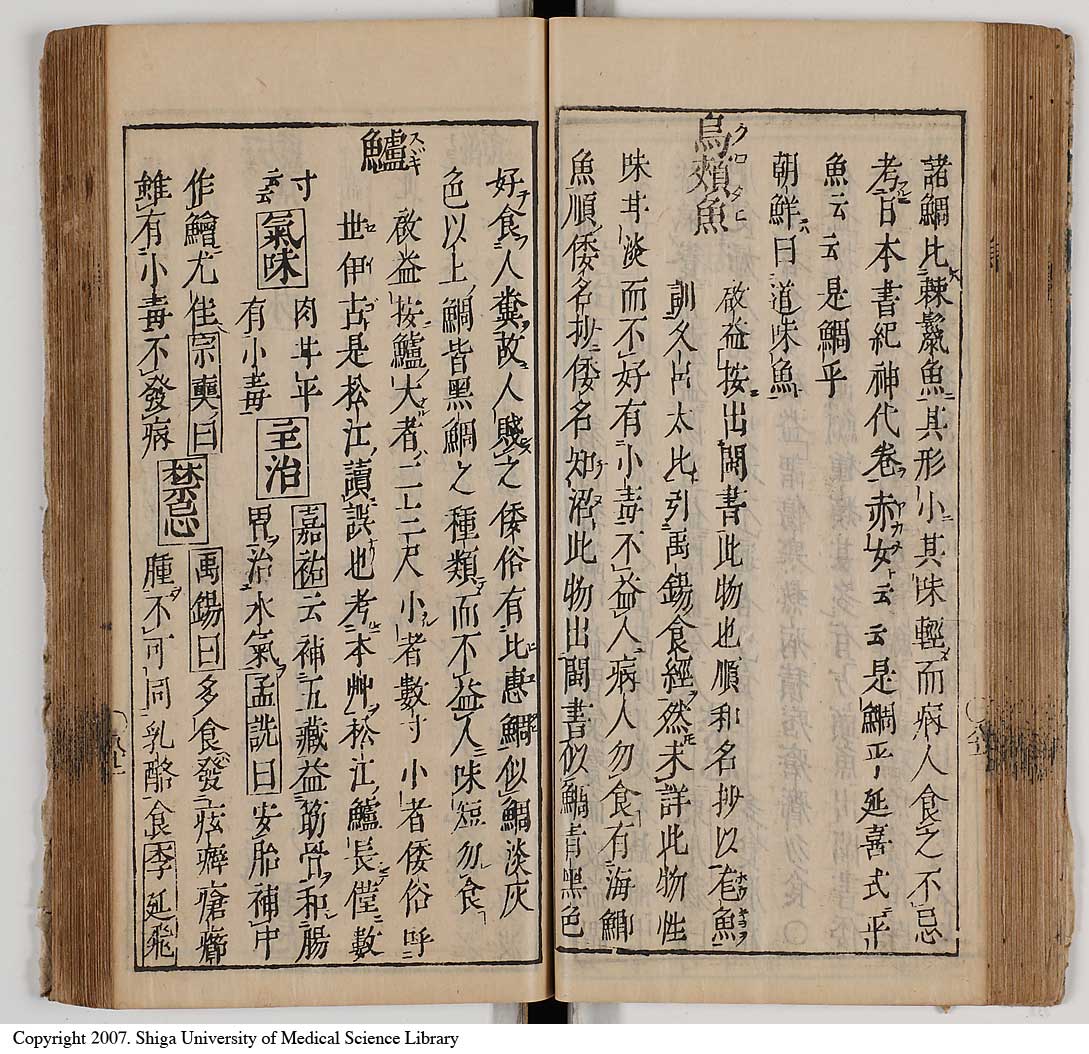 諸鯛比棘鬣魚其形小其味輕而病人食之不忌
考日本書紀神代卷赤女云云是鯛乎延喜式平
魚云云是鯛乎
朝鮮曰道味魚
烏頰魚
啟益按出閩書此物也順和名抄以尨魚
訓久呂太比引禹錫食經然未詳此物性
味甘淡而不好有小毒不益人病人勿食有海鯽
魚順倭名抄倭名知沼此物出閩書似鯛青黑色
好食人糞故人賤之倭俗有比惠鯛似鯛淡灰
色以上鯛皆黑鯛之種類而不益人味短勿食
鱸
啟益按鱸大者二三尺小者數寸小者倭俗呼
世伊古是松江讀誤也考本艸松江鱸長僅數
寸云云
氣味
肉甘平
有小毒
主治
嘉祐云補五藏益筋骨和腸
胃治水氣孟詵曰安胎補中
作鱠尤佳宗奭曰
雖有小毒不發病
禁忌
禹錫曰多食發痃癖瘡癤
腫不可同乳酪食李延飛
Copyright 2007. Shiga University of Medical Science Library